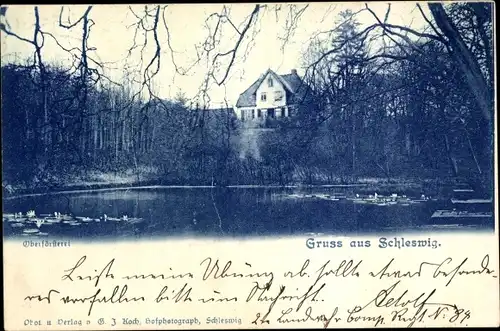 Oberförsterei
Gruss aus Schleswig.
Leiste meine Übung ab. Sollte etwas besonde
res vorfallen bitte um Nachricht. Adolf
Phot u Verlag v G. J. Koch, Hofphotograph, Schleswig
2te Landwehr Komp. Regt No 84